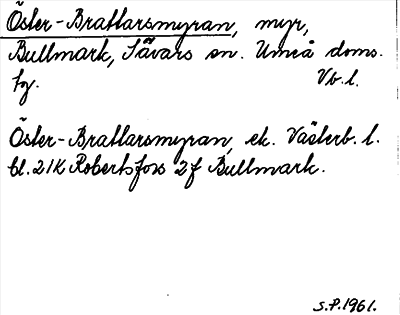 Öster-Brattarsmyran, myr,
Bullmark, Sävars sn. Umeå doms.
fg. Vb.l.
Öster-Brattarsmyran, ek. Västerb. l.
bl. 21K Robertsfors 2f Bullmark.
S.P.1961.